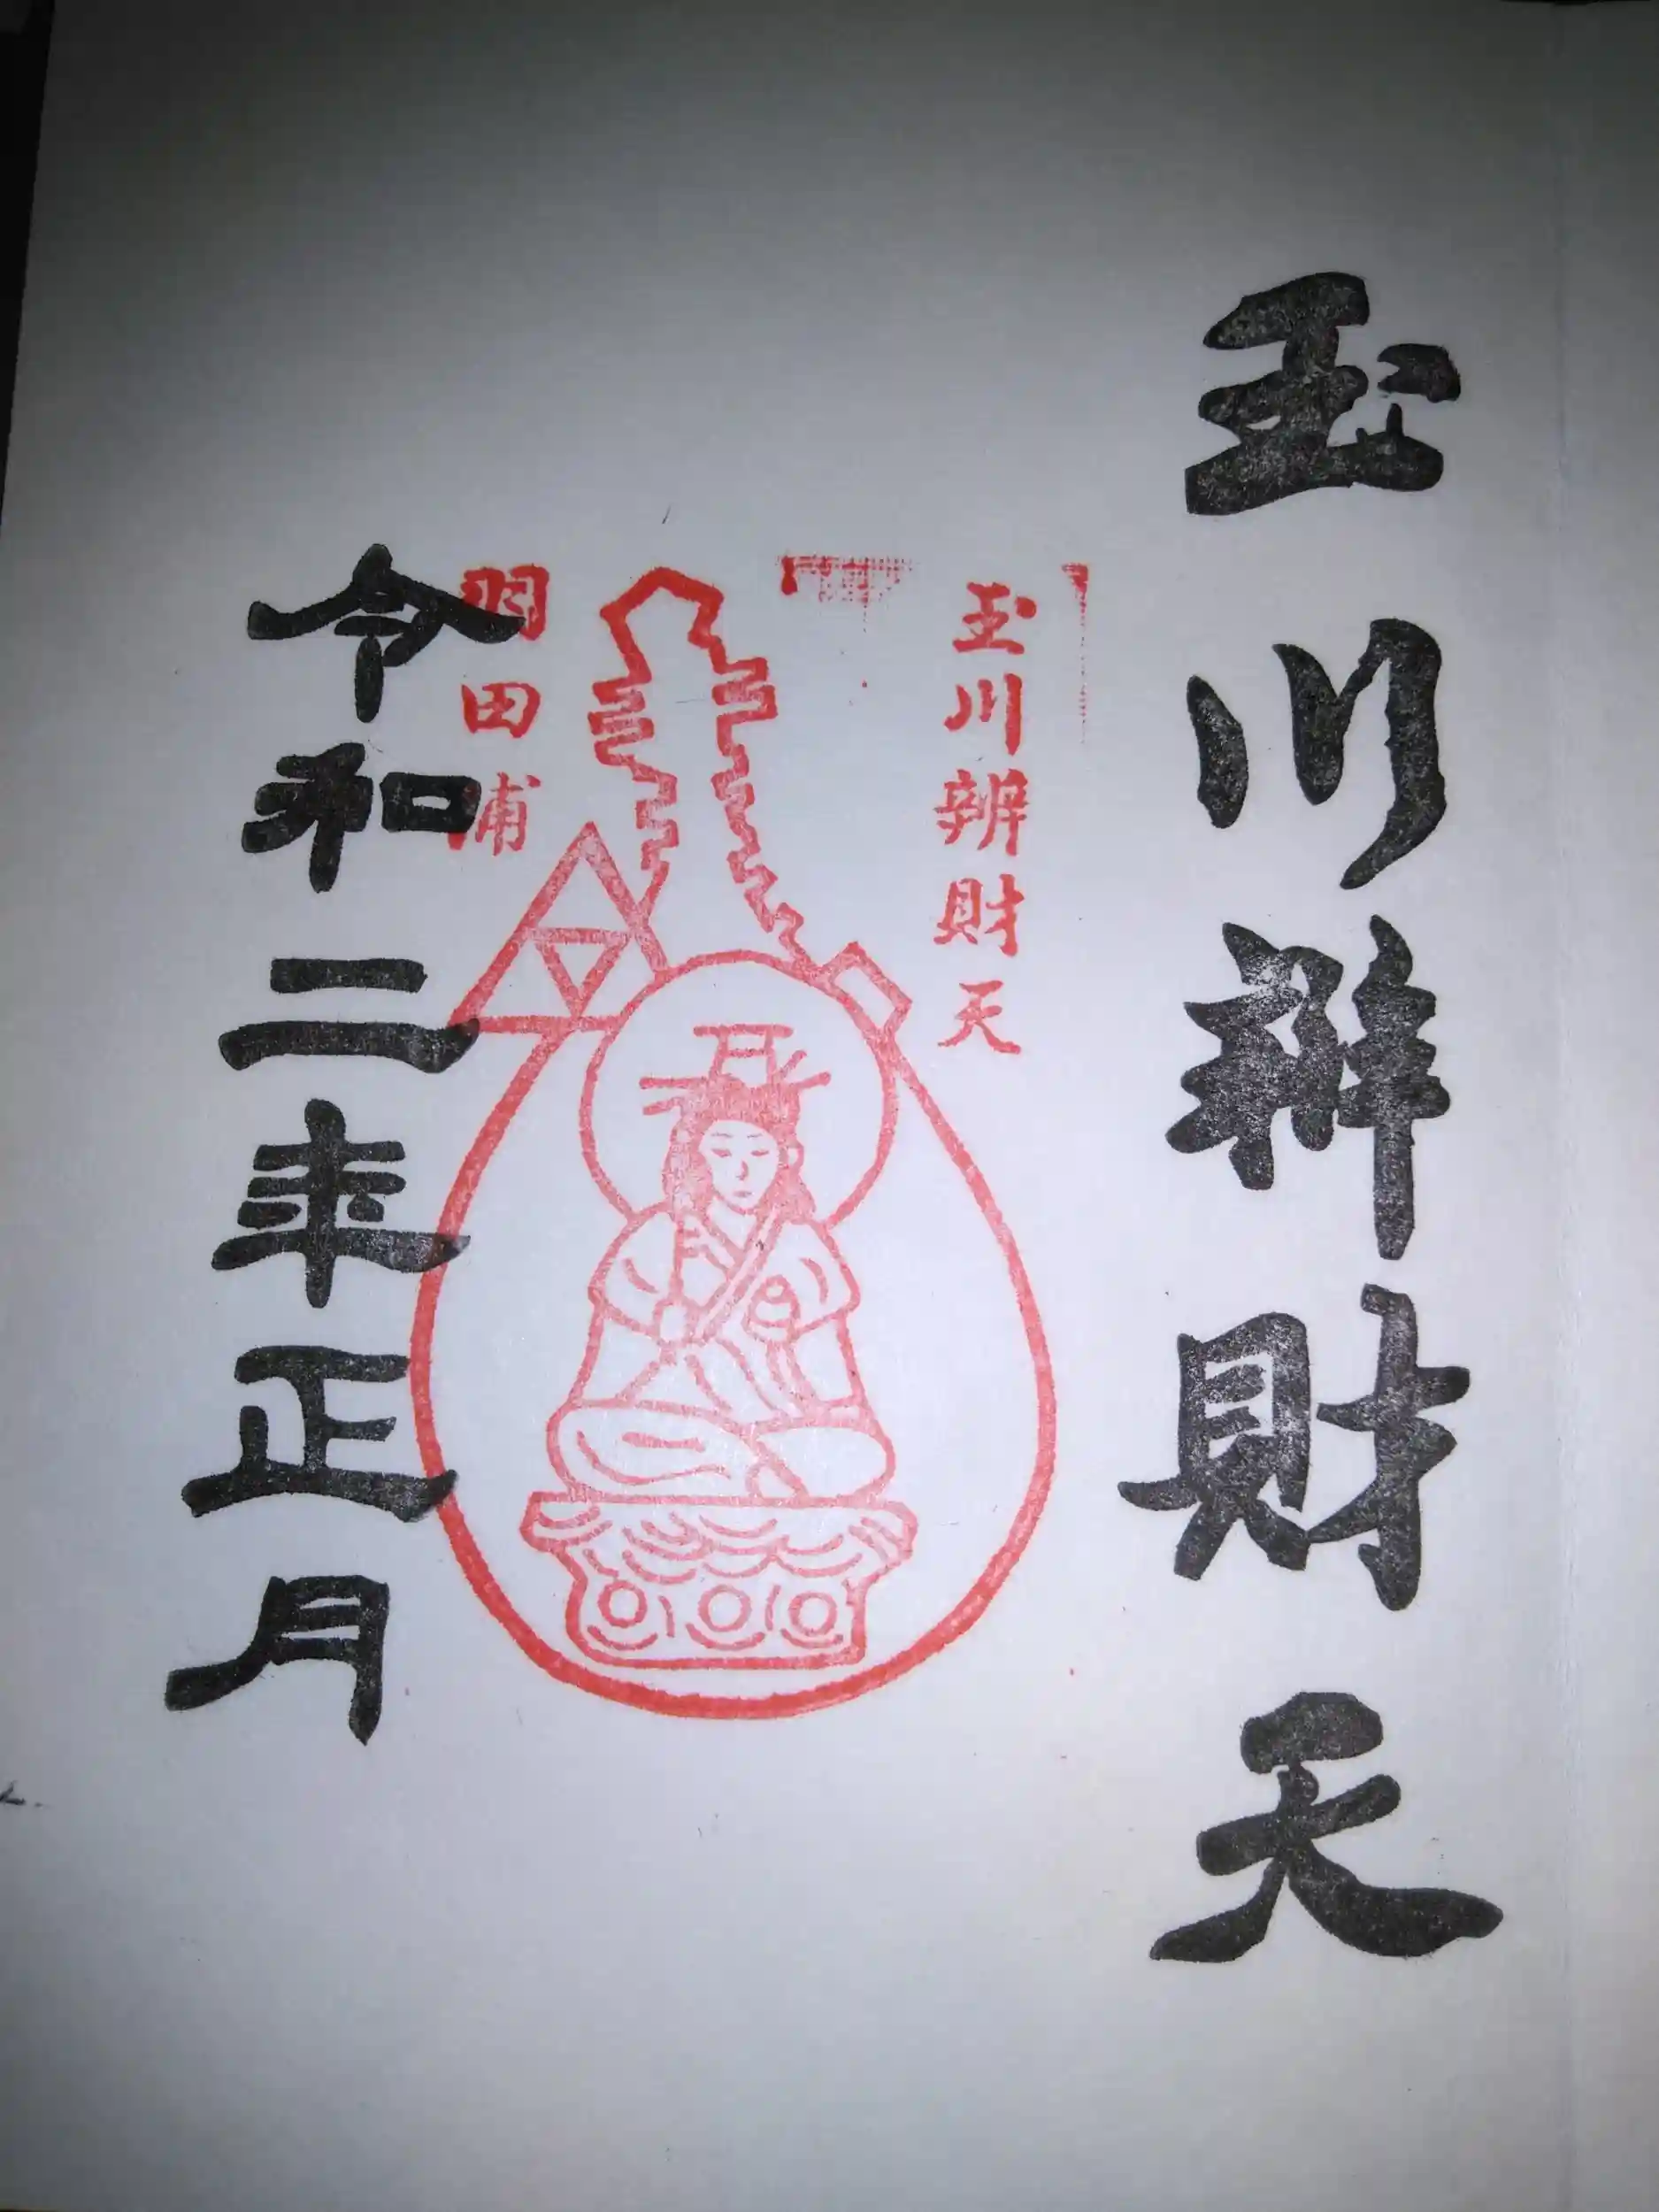 玉川辨財天
玉川辨財天
羽田浦
令和二年正月